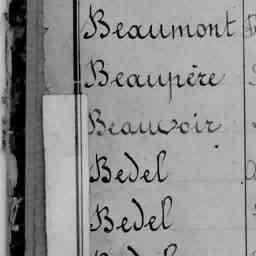 Beaumont
Beaupère
Beauvoir
Bedel
Bedel